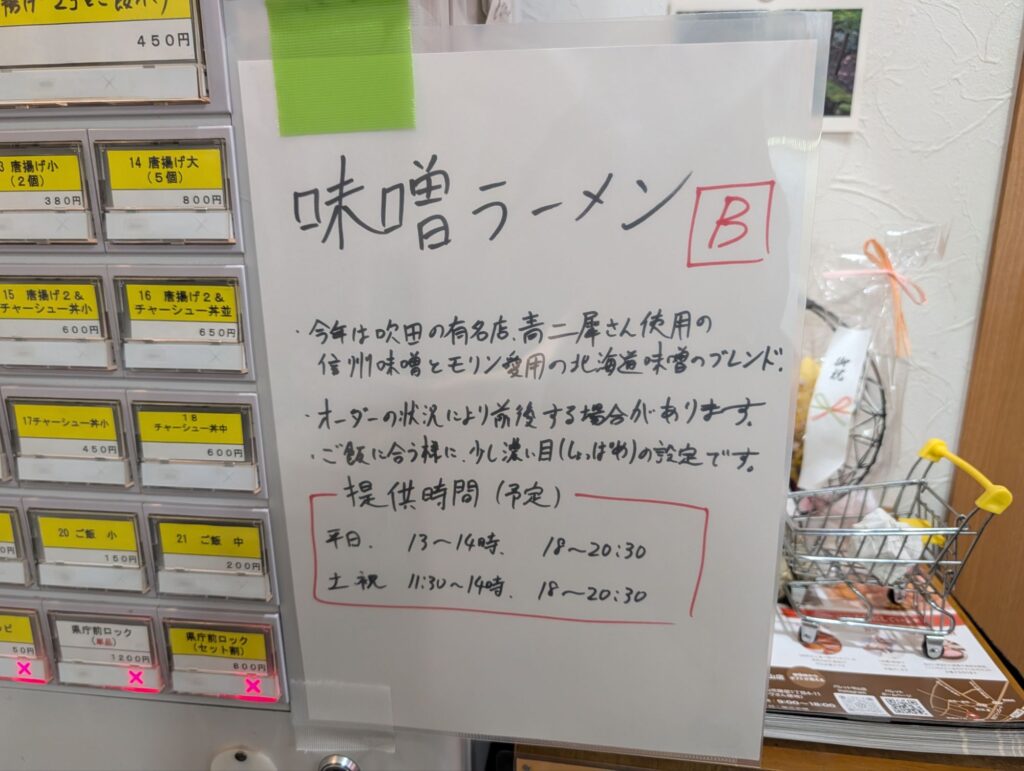 450円
唐揚げ小
(2個)
380円
14 唐揚げ大
(5個)
800円
15 唐揚げ2&
チャーシュー丼小
600円
16 唐揚げ2&
チャーシュー丼並
650円
17チャーシュー丼小
450円
18
チャーシュー丼中
600円
20 ご飯 小
150円
21 ご飯 中
200円
50円
県庁前ロック
(単品)
1200円
県庁前ロック
(セット割)
600円
味噌ラーメン B
・今年は吹田の有名店、青二犀さん使用の
信州味噌とモリン愛用の北海道味噌のブレンド。
・オーダーの状況により前後する場合があります。
・ご飯に合う様に、少し濃い目(しょっぱめ)の設定です。
提供時間(予定)
平日、 13〜14時、 18〜20:30
土祝 11:30〜14時、 18〜20:30
御祝
9:00〜18:00